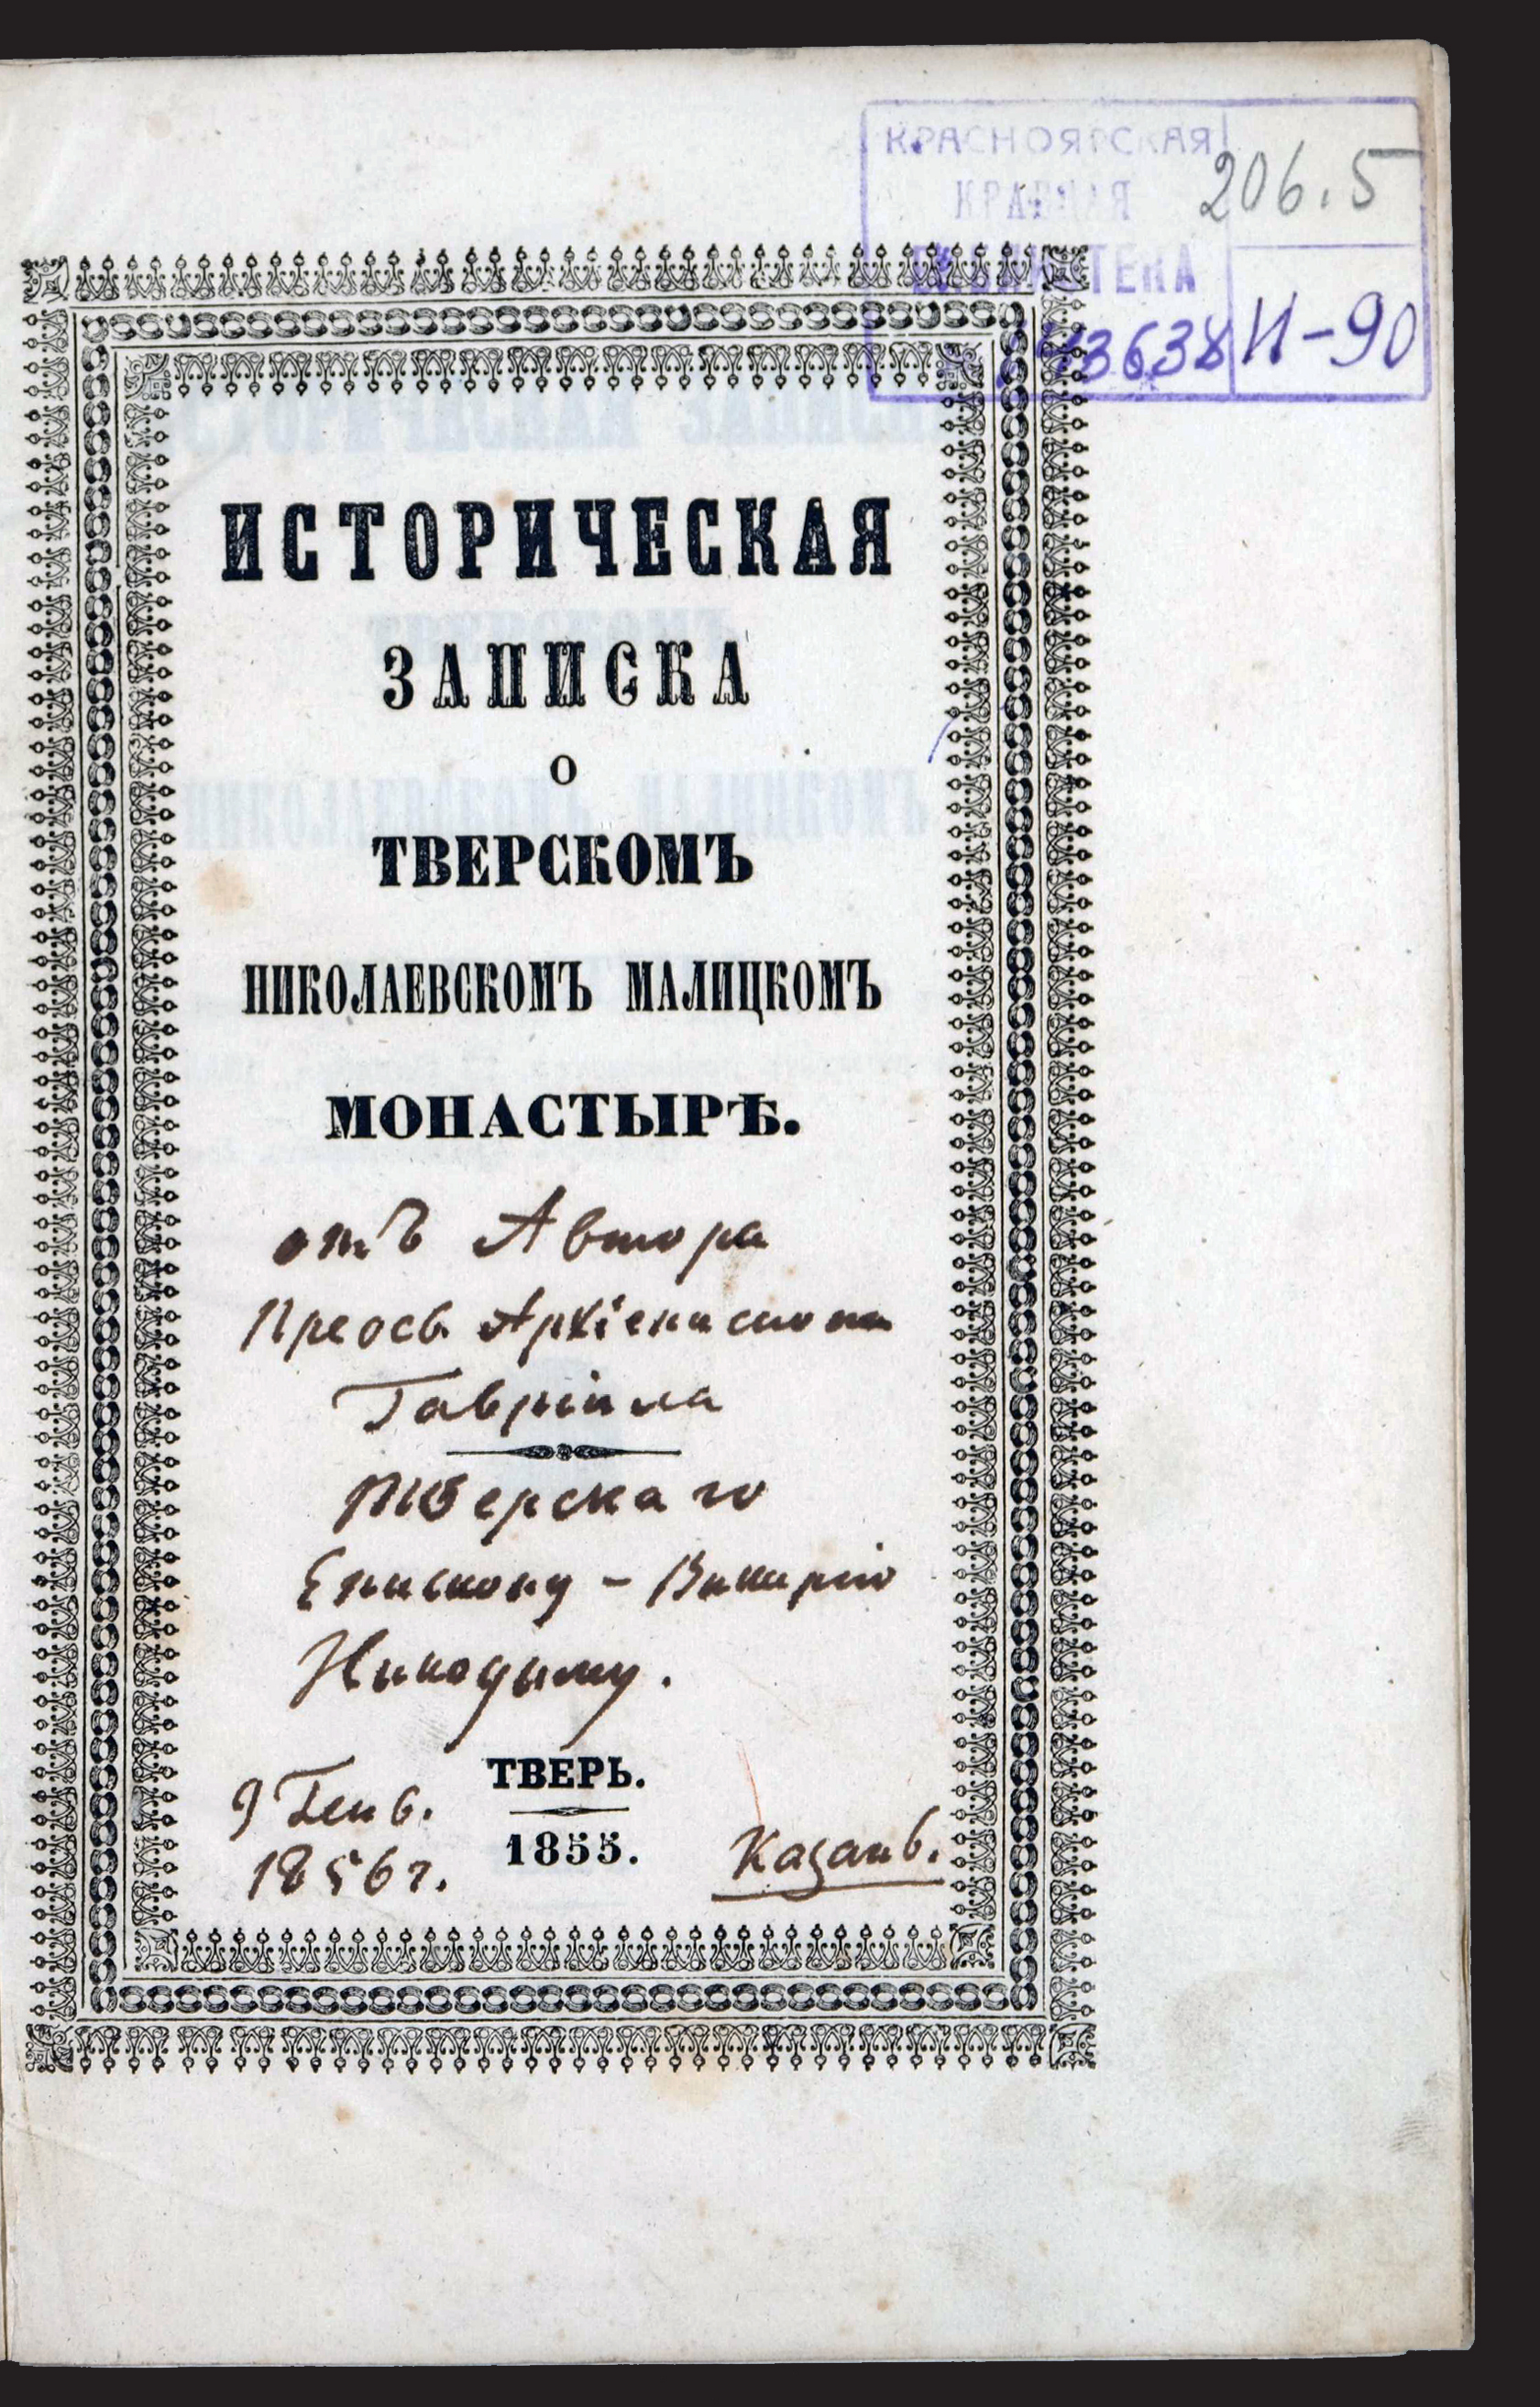 КРАСНОЯРСКАЯ
КРАЕВАЯ
БИБЛИОТЕКА
206.5
И-90
ИСТОРИЧЕСКАЯ
ЗАПИСКА
О
ТВЕРСКОМЪ
НИКОЛАЕВСКОМЪ МАЛИЦКОМЪ
МОНАСТЫРѢ.
отъ Автора
Преосв. Архіепископа
Гавріила
Тверскаго
Епископу - Викарію
Никодиму.
ТВЕРЬ.
9 Генв.
1856 г.
1855.
Казань.